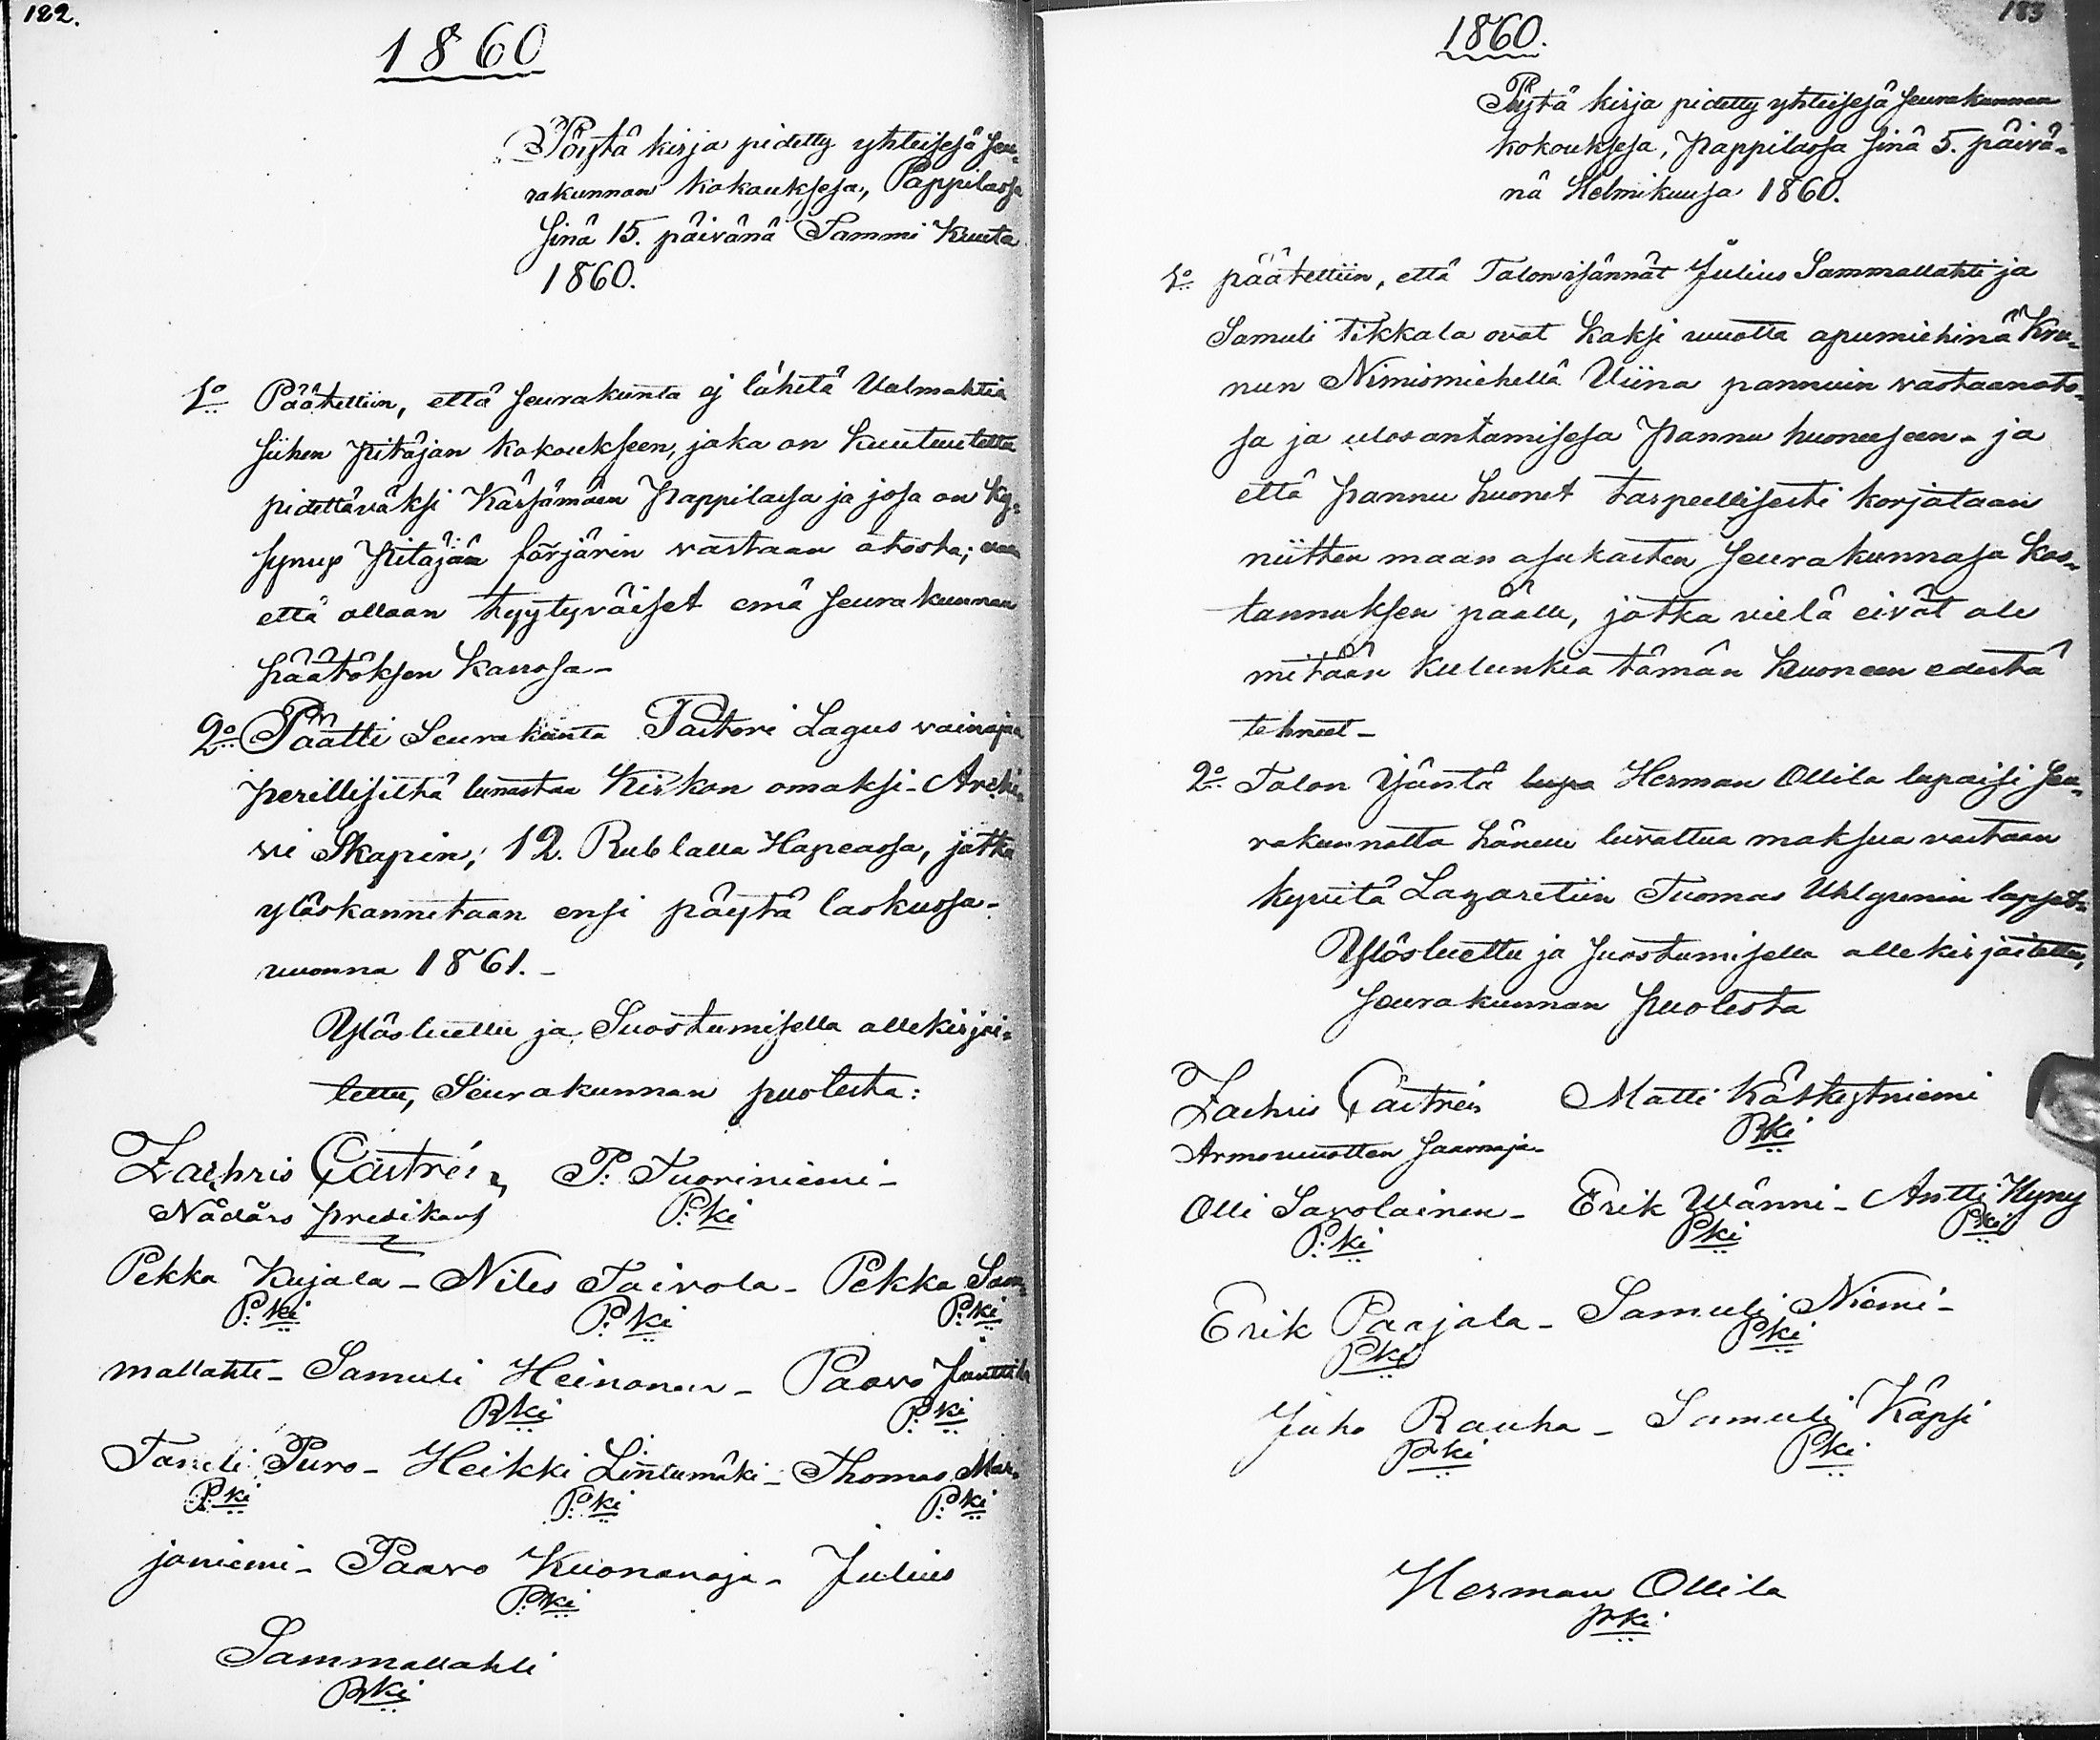 122.
1860
Pöytä kirja pidetty yhteisesä Seu-
rakunnan kokouksesa, Pappilassa
Sinä 15. päivänä Tammi Kuuta
1860.
1:o Päätettiin, että Seurakunta ej lähetä Valmahtia
siihen Pitäjän kokoukseen, joka on kuuluutettu
pidettäväksi Kärsämäen Pappilassa ja josa on ky-
symys Pitäjän färjärin vastaan otosta; vaan
että ollaan tyytyväiset emä seurakunnan
päätöksen kanssa-
2:o Päätti Seurakunta Pastori Lagus vainajan
perillisiltä lunastaa Kirkon omaksi- Archi-
vi Skapin; 12. Rublalla Hapeassa, jotka
ylöskannetaan ensi pöytä laskussa-
vuonna 1861.-
Ylösluettu ja Suostumisella allekirjoi-
tettu, Seurakunnan puolesta:
Zachris Castrén P. Tuoriniemi-
Nådårs predikant P:ki
Pekka Kujala- Niles Toivola- Pekka Sam-
P:ki P:ki P:ki
mallahti- Samuli Heinonen- Paavo Janttila
P:ki P:ki
Taneli Puro- Heikki Lintumäki- Thomas Mar-
P:ki P:ki P:ki
janiemi- Paavo Kuonanoja- Julius
P:ki
Sammallahti
P:ki
1860.
183
Pöytä kirja pidetty yhteisesä seurakunnan
kokouksesa, pappilassa sinä 5. päivä-
nä Helmikuusa 1860.
1:o päätettiin, että Talon isännät Julius Sammallahti ja
Samuli Tikkala ovat kaksi vuotta apumiehinä Kru-
nun Nimismiehellä Viina pannuin vastaanoto-
sa ja ulosantamisesa Pannu huoneeseen- ja
että pannu huonet tarpeellisesti korjataan
niitten maan asukasten seurakunnasa kos-
tannuksen päälle, jotka vielä eivät ole
mitään kulunkia tämän huoneen edestä
tehneet-
2:o Talon Isäntä lupa Herman Ollila lupaisi seu-
rakunnatta hänelle luvattua maksua vastaan
kyyitä Lazaretiin Tuomas Uhlgrenin lapset-
Ylösluettu ja suostumisella allekirjoitettu,
seurakunnan puolesta
Zachris Castrén Matti Käskyniemi
P:ki
Armovuotten Saarnaja-
Olli Savolainen- Erik Wänni- Antti Hyny
P:ki P:ki P:ki
Erik Paajala- Samuli Niemi-
P:ki P:ki
Juho Rauha- Samuli Käpsi
P:ki P:ki
Herman Ollila
P:ki